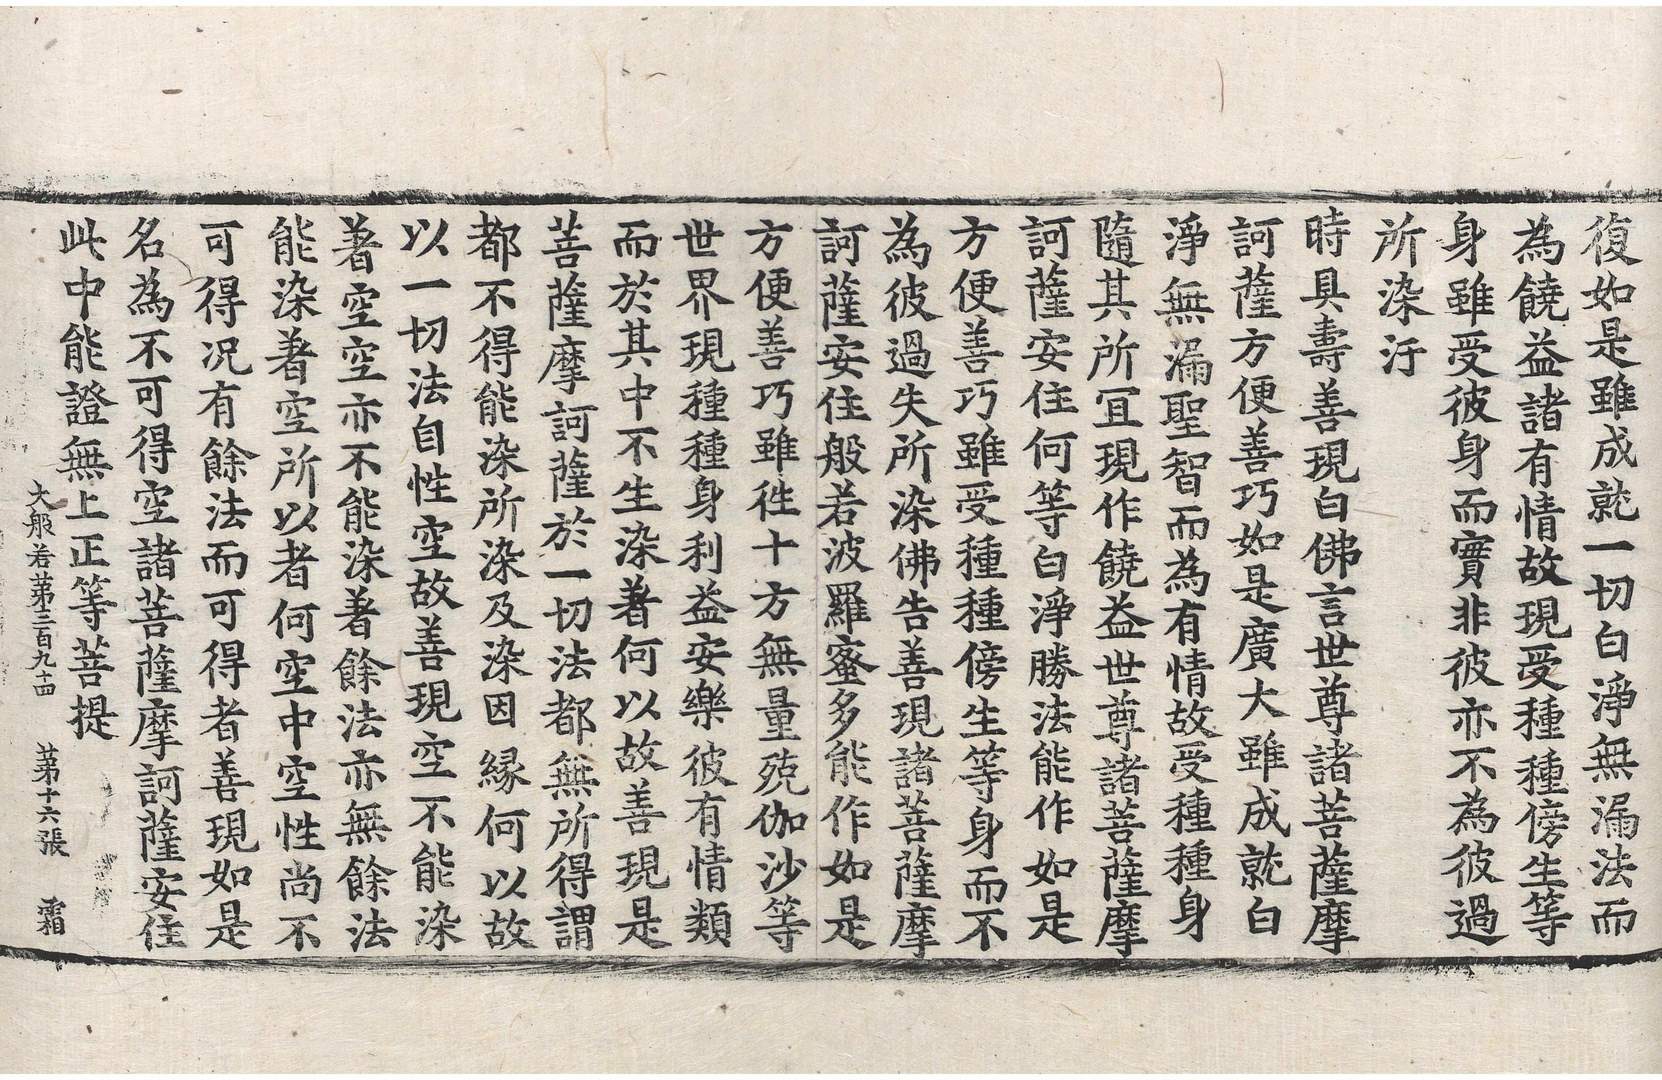 復如是雖成就一切白淨無漏法而
為饒益諸有情故現受種種傍生等
身雖受彼身而實非彼亦不為彼過
所染汙
時具壽善現白佛言世尊諸菩薩摩
訶薩方便善巧如是廣大雖成就白
淨無漏聖智而為有情故受種種身
隨其所冝現作饒益世尊諸菩薩摩
訶薩安住何等白淨勝法能作如是
方便善巧雖受種種傍生等身而不
為彼過失所染佛告善現諸菩薩摩
訶薩安住般若波羅蜜多能作如是
方便善巧雖徃十方無量殑伽沙等
世界現種種身利益安樂彼有情類
而於其中不生染著何以故善現是
菩薩摩訶薩於一切法都無所得謂
都不得能染所染及染因縁何以故
以一切法自性空故善現空不能染
著空空亦不能染著餘法亦無餘法
能染著空所以者何空中空性尚不
可得况有餘法而可得者善現如是
名為不可得空諸菩薩摩訶薩安住
此中能證無上正等菩提
大般若苐三百九十四 苐十六張 霜